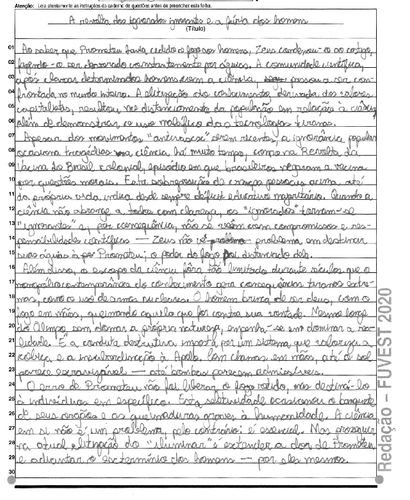 Atenção: Leia atentamente as instruções do caderno de questões antes de preencher esta folha.
A revolta dos ignorados ignorante e a fúria dos homens
(Título)
01 Ao saber que Prometeu havia cedido o fogo aos homem, Zeus condenou-o ao castigo,
02 fazendo-o ser devorado constantemente por águias. A comunidade científica,
03 após elevar determinados homens com a ciência, passou a ser con-
04 frontada no mundo inteiro. A elitização do conhecimento, derivada dos valores
05 capitalistas, resultou no distanciamento da população em relação à ciência,
06 além de demonstrar o uso maléfico das tecnologias tiranas.
07 Apesar dos movimentos "antivacina" serem recentes, a ignorância popular
08 ocasiona tragédias na ciência há muito tempo, como na Revolta da
09 Vacina do Brasil colonial, episódio em que brasileiros negaram a vacina
10 por questões morais. Esta sobreposição da crença pessoal acima, até
11 da própria vida indica desde sempre déficit educativo majoritário. Quando a
12 ciência não abrange a todos com clareza, os "ignorados" tornam-se
13 "ignorantes" e, por consequência, não se veem com compromissos e res-
14 ponsabilidades científicos — Zeus não vê problema em destinar
15 suas águias à por Prometeu; o poder do fogo foi distanciado dele.
16 Além disso, o escopo da ciência fora tão limitado durante séculos que o
17 monopólio contemporâneo do conhecimento gera consequências tiranas extre-
18 mas, como o uso de armas nucleares. O homem brinca de ser deus, com o
19 fogo em mãos, queimando aquilo que for contra sua vontade. Mesmo longe
20 do Olimpo, sem domar a própria natureza, empenha-se em dominar a rea-
21 lidade. E a conduta destrutiva imposta por um sistema que valoriza a
22 cobiça e a insubordinação à Apollo com chamas em mãos, até o sol
23 parece — até bombas parecem admissíveis.
24 O erro de Prometeu não foi liberar o fogo retido, mas destiná-lo
25 à indivíduos em específico. Esta seletividade ocasionou o
26 de seus corações e as queimaduras graves à humanidade. A ciência
27 em si não é um problema, pelo contrário: é essencial. Mas prosseguir
28 na atual elitização do "iluminar" é estender a dor de Prometeu
29 e adiantar o extermínio dos homens — por eles mesmos.
30
Redação - FUVEST 2020